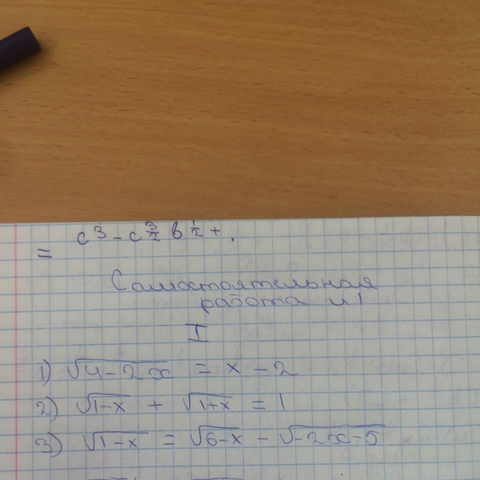 = c³ - c^{3/2} b^{1/2} +
Самостоятельная
работа
I
1) √(4-2x) = x - 2
2) √(1-x) + √(1+x) = 1
3) √(1-x) = √(6-x) - √(-2x-5)